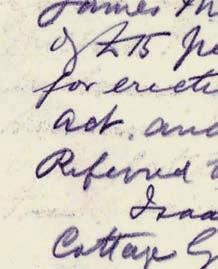 James
of £15
for erecti
Act. and
Referred
Isaa
Cottage G